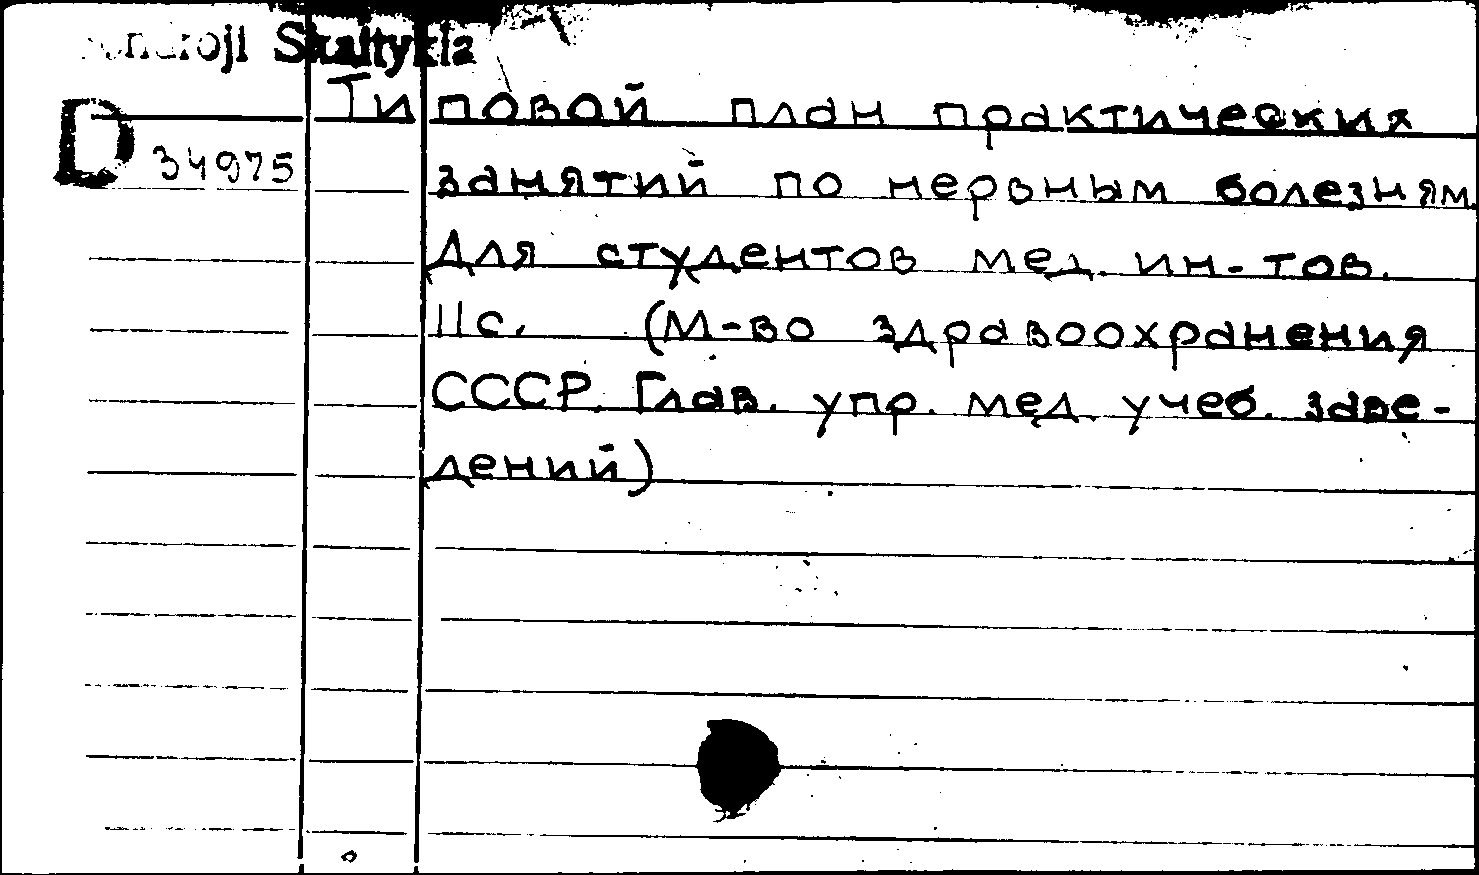 Skaitykla
Типовой план практических
D 34975
занятий по нервным болезням.
Для студентов мед. ин-тов.
11с. (М-во здравоохранения
СССР. Глав. упр. мед. учеб. заве-
дений)